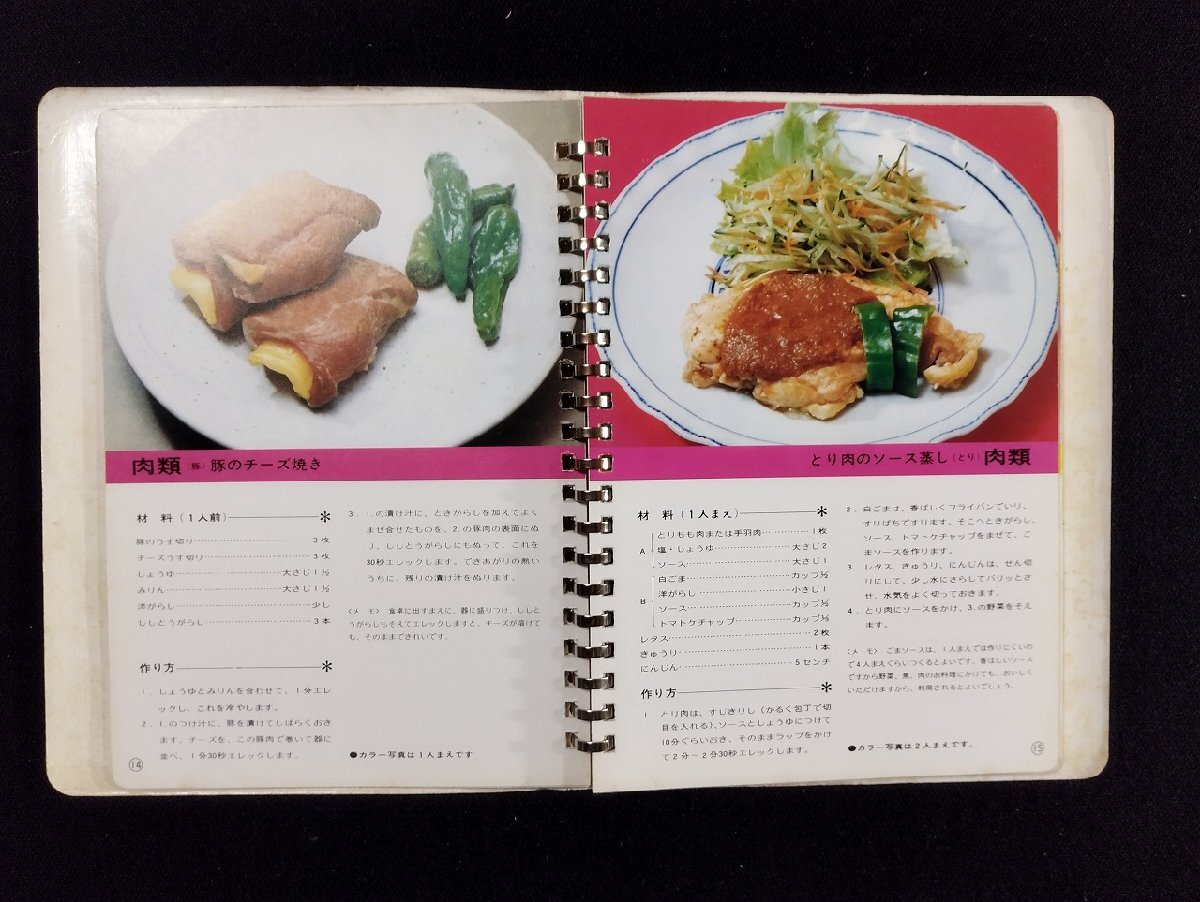 肉類(豚)豚のチーズ焼き
材 料(1人前)
豚のうす切り 3枚
チーズうす切り 3枚
しょうゆ 大さじ1½
みりん 大さじ1½
洋がらし 少し
ししとうがらし 3本
作り方
1. しょうゆとみりんを合わせて、1分エレ
ックし、これを冷やします。
2. 1.のつけ汁に、豚を漬けてしばらくおき
ます。チーズを、この豚肉で巻いて器に
並べ、1分30秒エレックします。
3. 1.の漬け汁に、ときがらしを加えてよく
まぜ合せたものを、2.の豚肉の表面にぬ
り、ししとうがらしにもぬって、これを
30秒エレックします。できあがりの熱い
うちに、残りの漬け汁をぬります。
〈メ モ〉 食卓に出すまえに、器に盛りつけ、ししと
うがらしもそえてエレックしますと、チーズが溶けて
も、そのままできれいです。
●カラー写真は1人まえです
14
とり肉のソース蒸し(とり)肉類
材 料(1人まえ)
A
とりもも肉または手羽肉 1枚
塩・しょうゆ 大さじ2
ソース 大さじ1
B
白ごま カップ½
洋がらし 小さじ1
ソース カップ½
トマトケチャップ カップ½
レタス 2枚
きゅうり 1本
にんじん 5センチ
作り方
1 とり肉は、すじきりし(かるく包丁で切
目を入れる)、ソースとしょうゆにつけて
10分ぐらいおき、そのままラップをかけ
て2分〜2分30秒エレックします。
2. 白ごまは、香ばしくフライパンでいり、
すりばちですります。そこへときがらし、
ソース トマトケチャップをまぜて、ご
まソースを作ります。
3 レタス きゅうり、にんじんは、せん切
りにして、少し水にさらしてパリッとさ
せ、水気をよく切っておきます。
4. とり肉にソースをかけ、3.の野菜をそえ
ます。
〈メ モ〉 ごまソースは、1人まえでは作りにくいの
で4人まえぐらいつくるとよいです。香ばしいソース
ですから野菜、魚、肉のお料理にかけても、おいしく
いただけますから、利用されるとよいでしょう。
●カラー写真は2人まえです。
15